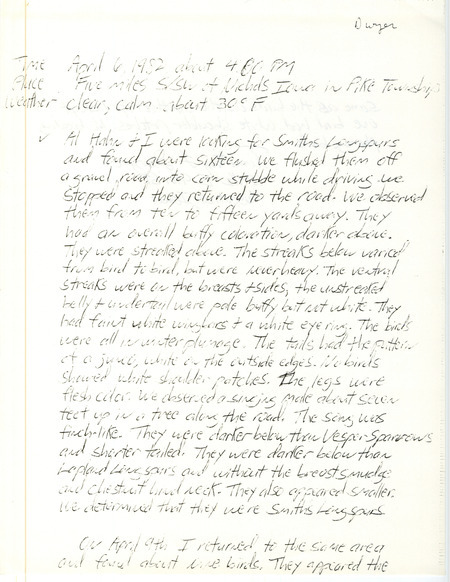 Dwyer
Time April 6, 1982 about 4:00 PM
Place Five miles S/SW of Nichols Iowa in Pike Township
Weather Clear, calm about 30° F
Al Hahn & I were looking for Smiths Longspurs
and found about sixteen. We flushed them off
a gravel road, into corn stubble while driving. We
stopped and they returned to the road. We observed
them from ten to fifteen yards away. They
had an overall buffy coloration, darker above.
They were streaked above. The streaks below varied
from bird to bird, but were never heavy. The ventral
streaks were on the breasts & sides, the unstreaked
belly & undertail were pale buffy but not white. They
had faint white wingbars & a white eye ring. The birds
were all in winter plumage. The tails had the pattern
of a junco, white on the outside edges. No birds
showed white shoulder patches. The legs were
flesh color. We observed a singing male about seven
feet up in a tree along the road. The song was
finch-like. They were darker below than Vesper Sparrows
and shorter tailed. They were darker below than
Lapland Longspurs and without the breast smudge
and chestnut hind neck. They also appeared smaller.
We determined that they were Smiths Longspurs.
On April 9th I returned to the same area
and found about nine birds. They appeared the